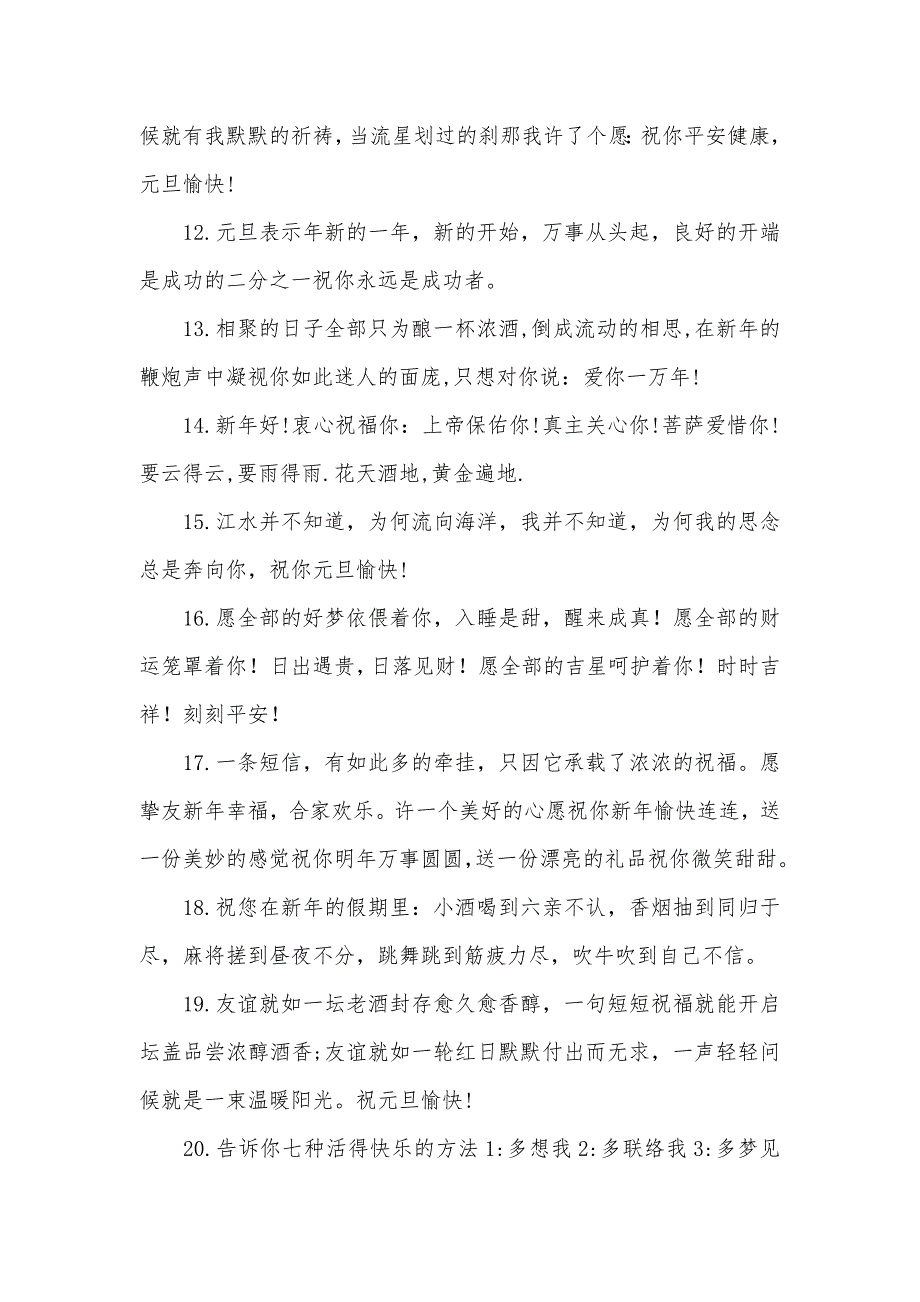 候就有我默默的祈祷,当流星划过的刹那我许了个愿:祝你平安健康,
元旦愉快!
12.元旦表示年新的一年，新的开始，万事从头起，良好的开端
是成功的二分之一祝你永远是成功者。
13.相聚的日子全部只为酿一杯浓酒,倒成流动的相思,在新年的
鞭炮声中凝视你如此迷人的面庞,只想对你说：爱你一万年!
14.新年好!衷心祝福你：上帝保佑你!真主关心你!菩萨爱惜你!
要云得云,要雨得雨.花天酒地,黄金遍地.
15.江水并不知道，为何流向海洋，我并不知道，为何我的思念
总是奔向你，祝你元旦愉快!
16.愿全部的好梦依偎着你，入睡是甜，醒来成真！愿全部的财
运笼罩着你！日出遇贵,日落见财！愿全部的吉星呵护着你！时时吉
祥！刻刻平安！
17.一条短信，有如此多的牵挂，只因它承载了浓浓的祝福。愿
挚友新年幸福，合家欢乐。许一个美好的心愿祝你新年愉快连连，送
一份美妙的感觉祝你明年万事圆圆,送一份漂亮的礼品祝你微笑甜甜。
18.祝您在新年的假期里：小酒喝到六亲不认，香烟抽到同归于
尽，麻将搓到昼夜不分，跳舞跳到筋疲力尽，吹牛吹到自己不信。
19.友谊就如一坛老酒封存愈久愈香醇，一句短短祝福就能开启
坛盖品尝浓醇酒香;友谊就如一轮红日默默付出而无求，一声轻轻问
候就是一束温暖阳光。祝元旦愉快!
20.告诉你七种活得快乐的方法1:多想我2:多联络我3:多梦见